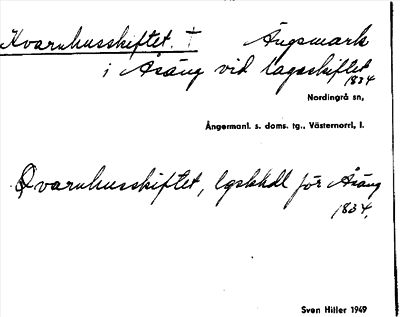 Kvarnhusskiftet. † Ängsmark
i Åsäng vid lagaskiftet
1834
Nordingrå sn,
Ångermanl. s. doms. tg., Västernorrl, l.
Qvarnhusskiftet, lgskhdl för Åsäng
1834.
Sven Hitler 1949